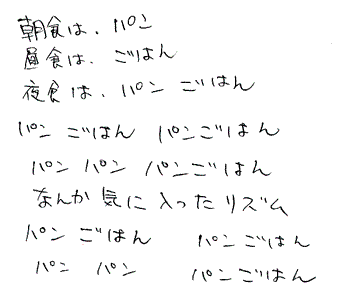 朝食は、パン
昼食は、ごはん
夜食は、パン ごはん
パン ごはん パンごはん
パン パン パンごはん
なんか気に入ったリズム
パン ごはん パンごはん
パン パン パンごはん